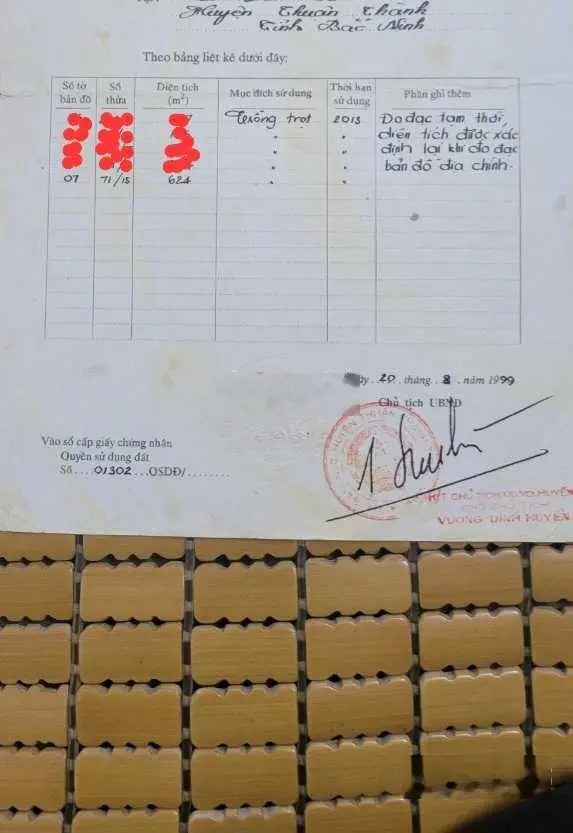 Huyện Thuận Thành
Tỉnh Bắc Ninh
Theo bảng liệt kê dưới đây:
Số tờ bản đồ Số thửa Diện tích (m²) Mục đích sử dụng Thời hạn sử dụng Phần ghi thêm
Trồng trọt 2013 Đo đạc tạm thời,
" " diện tích được xác
" " định lại khi đo đạc
07 71/15 624 " " bản đồ địa chính.
20 tháng 8 năm 1999
Chủ tịch UBND
Vào sổ cấp giấy chứng nhận
Quyền sử dụng đất
Số....01302...QSDĐ/........
HUYỆN THUẬN
K/T CHỦ TỊCH UBND HUYỆN
PHÓ CHỦ TỊCH
VƯƠNG ĐÌNH HUYÊN